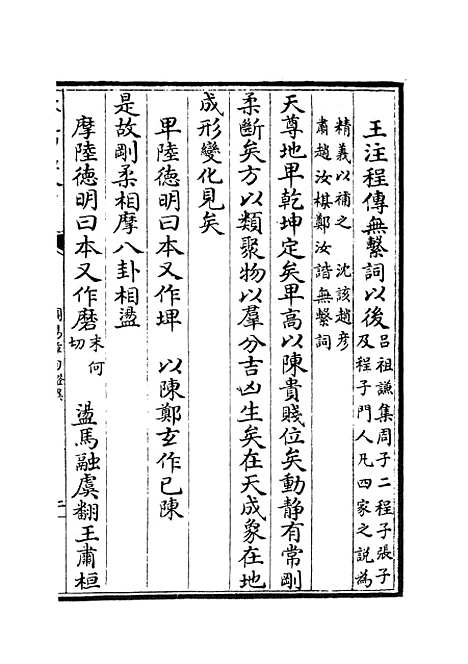 王注程傳無繫詞以後呂祖謙集周子二程子張子及程子門人凡四家之說為
精義以補之　沈該趙彥肅趙汝楳鄭汝諧無繫詞
天尊地卑乾坤定矣卑高以陳貴賤位矣動靜有常剛
柔斷矣方以類聚物以羣分吉凶生矣在天成象在地
成形變化見矣
卑陸德明曰本又作埤　以陳鄭玄作已陳
是故剛柔相摩八卦相盪
摩陸德明曰本又作磨末何切　盪馬融虞翻王肅桓